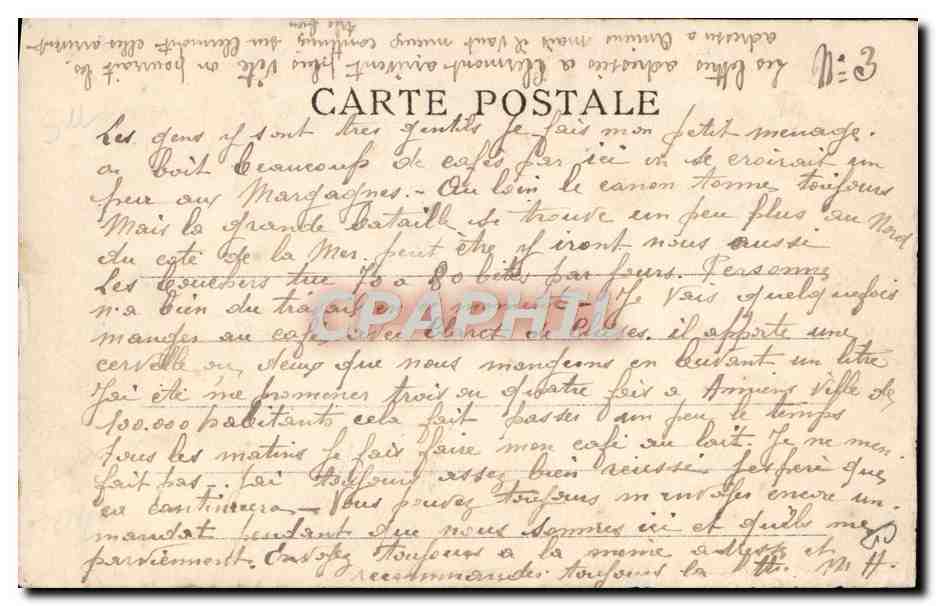 Les lettres adressées a Clermont arrivent plus vite on pourrait les
adresser a Amiens mais il vaut mieux continuer sur Clermont elles arrivent
très bien
N: 3
CARTE POSTALE
Les gens y sont très gentils je fais mon petit menage.
on boit beaucoup de cafés par ici on se croirait un
peu aux Margagnes. - Au loin le canon tonne toujours
Mais la grande bataille se trouve un peu plus au Nord
du coté de la Mer. peut être y iront nous aussi
Les bouchers tue 70 a 80 bêtes par jours. Personne
n'a bien du travail en ce moment - Je vais quelquefois
manger au café avec il apporte une
cervelle ou deux que nous mangeons en buvant un litre
J'ai été me promener trois ou quatre fois a Amiens ville de
100.000 habitants cela fait passer un peu le temps
tous les matins je fais faire mon café au lait. Je ne men
fait pas -. jai toujours assez bien réussi jespère que
ca continuera - Vous pouvez toujours m envoyer encore un
mandat pendant que nous sommes ici et qu'ils me
parviennent. Envoyez toujours a la meme adresse et
recommandés toujours la M. H.
CPAPHIL